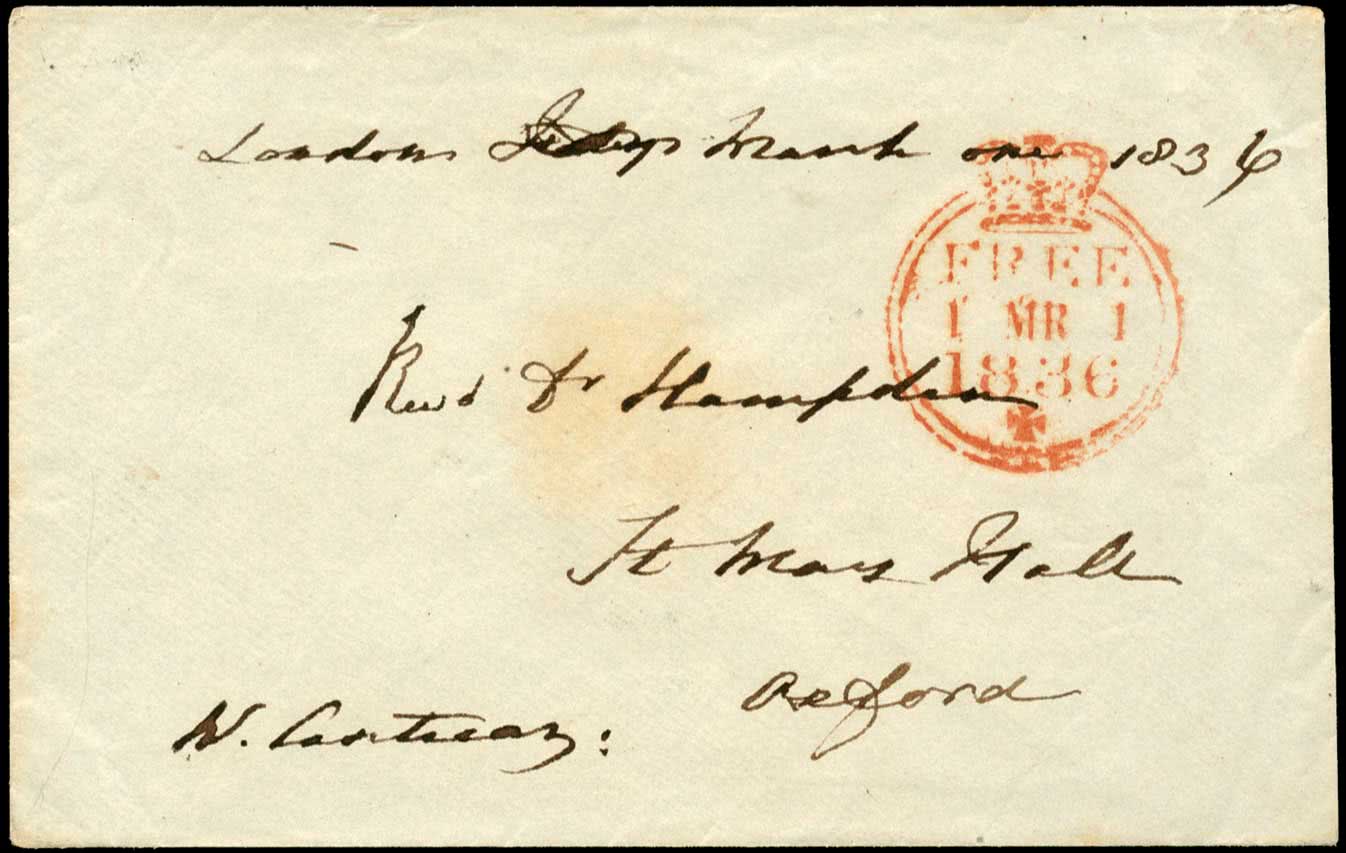 London March one 1836
FREE
1 MR 1
1836
Revd Dr Hampden
St Mary Hall
Oxford
W.